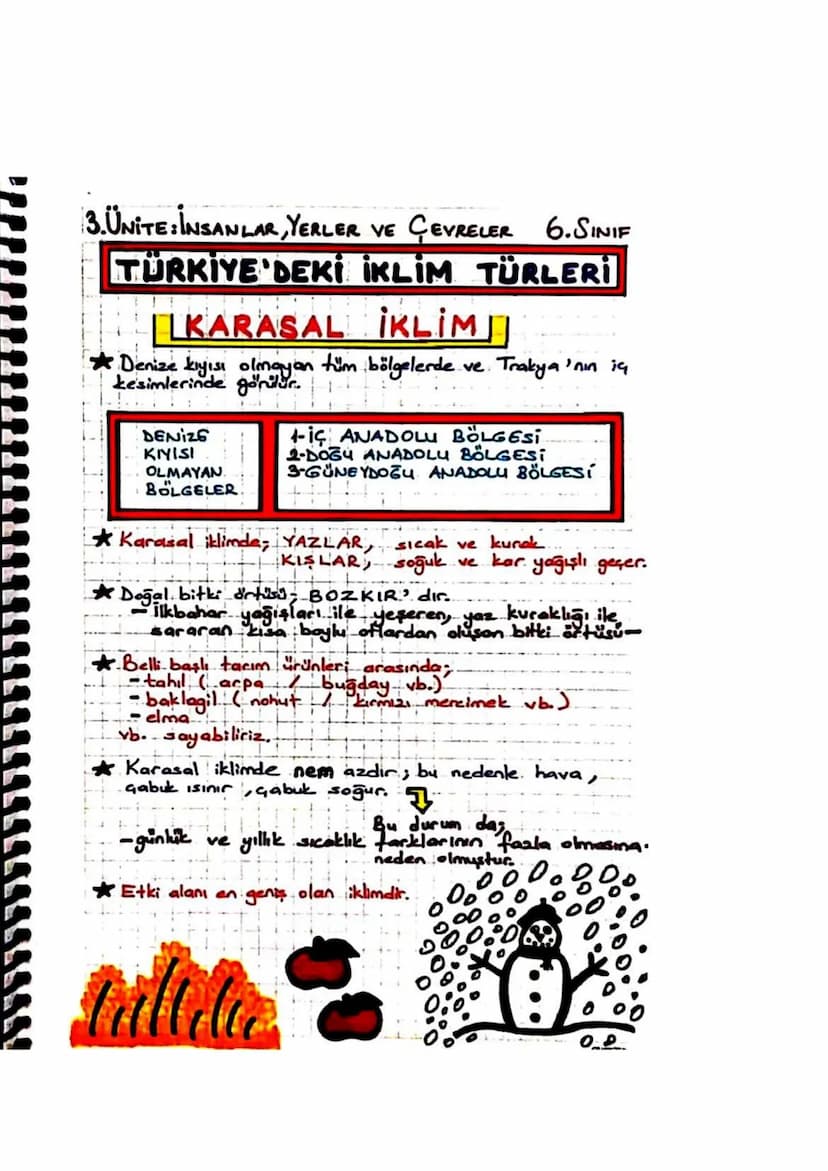 3.ÜNİTE:İNSANLAR,YERLER VE ÇEVRELER 6.SINIF
TÜRKİYE'DEKİ İKLİM TÜRLERİ
KARASAL İKLİM
★ Denize kıyısı olmayan tüm bölgelerde ve Trakya'nın iç
kesimlerinde görülür.
DENİZE
KIYISI
OLMAYAN
BÖLGELER
1-İÇ ANADOLU BÖLGESİ
2-DOĞU ANADOLU BÖLGESİ
3-GÜNEYDOĞU ANADOLU BÖLGESİ
★ Karasal iklimde; YAZLAR, sıcak ve kurak
KIŞLAR, soğuk ve kar yağışlı geçer.
★ Doğal bitki örtüsü; BOZKIR'dır.
- İlkbahar yağışları ile yeşeren, yaz kuraklığı ile
sararan kısa boylu otlardan oluşan bitki örtüsü-
★ Belli başlı tarım ürünleri arasında;
- tahıl ( arpa / buğday vb.)
- baklagil ( nohut / kırmızı mercimek vb.)
- elma
vb. sayabiliriz.
★ Karasal iklimde nem azdır; bu nedenle hava,
çabuk ısınır, çabuk soğur.
Bu durum da;
-günlük ve yıllık sıcaklık farklarının fazla olmasına
neden olmuştur.
★ Etki alanı en geniş olan iklimdir.